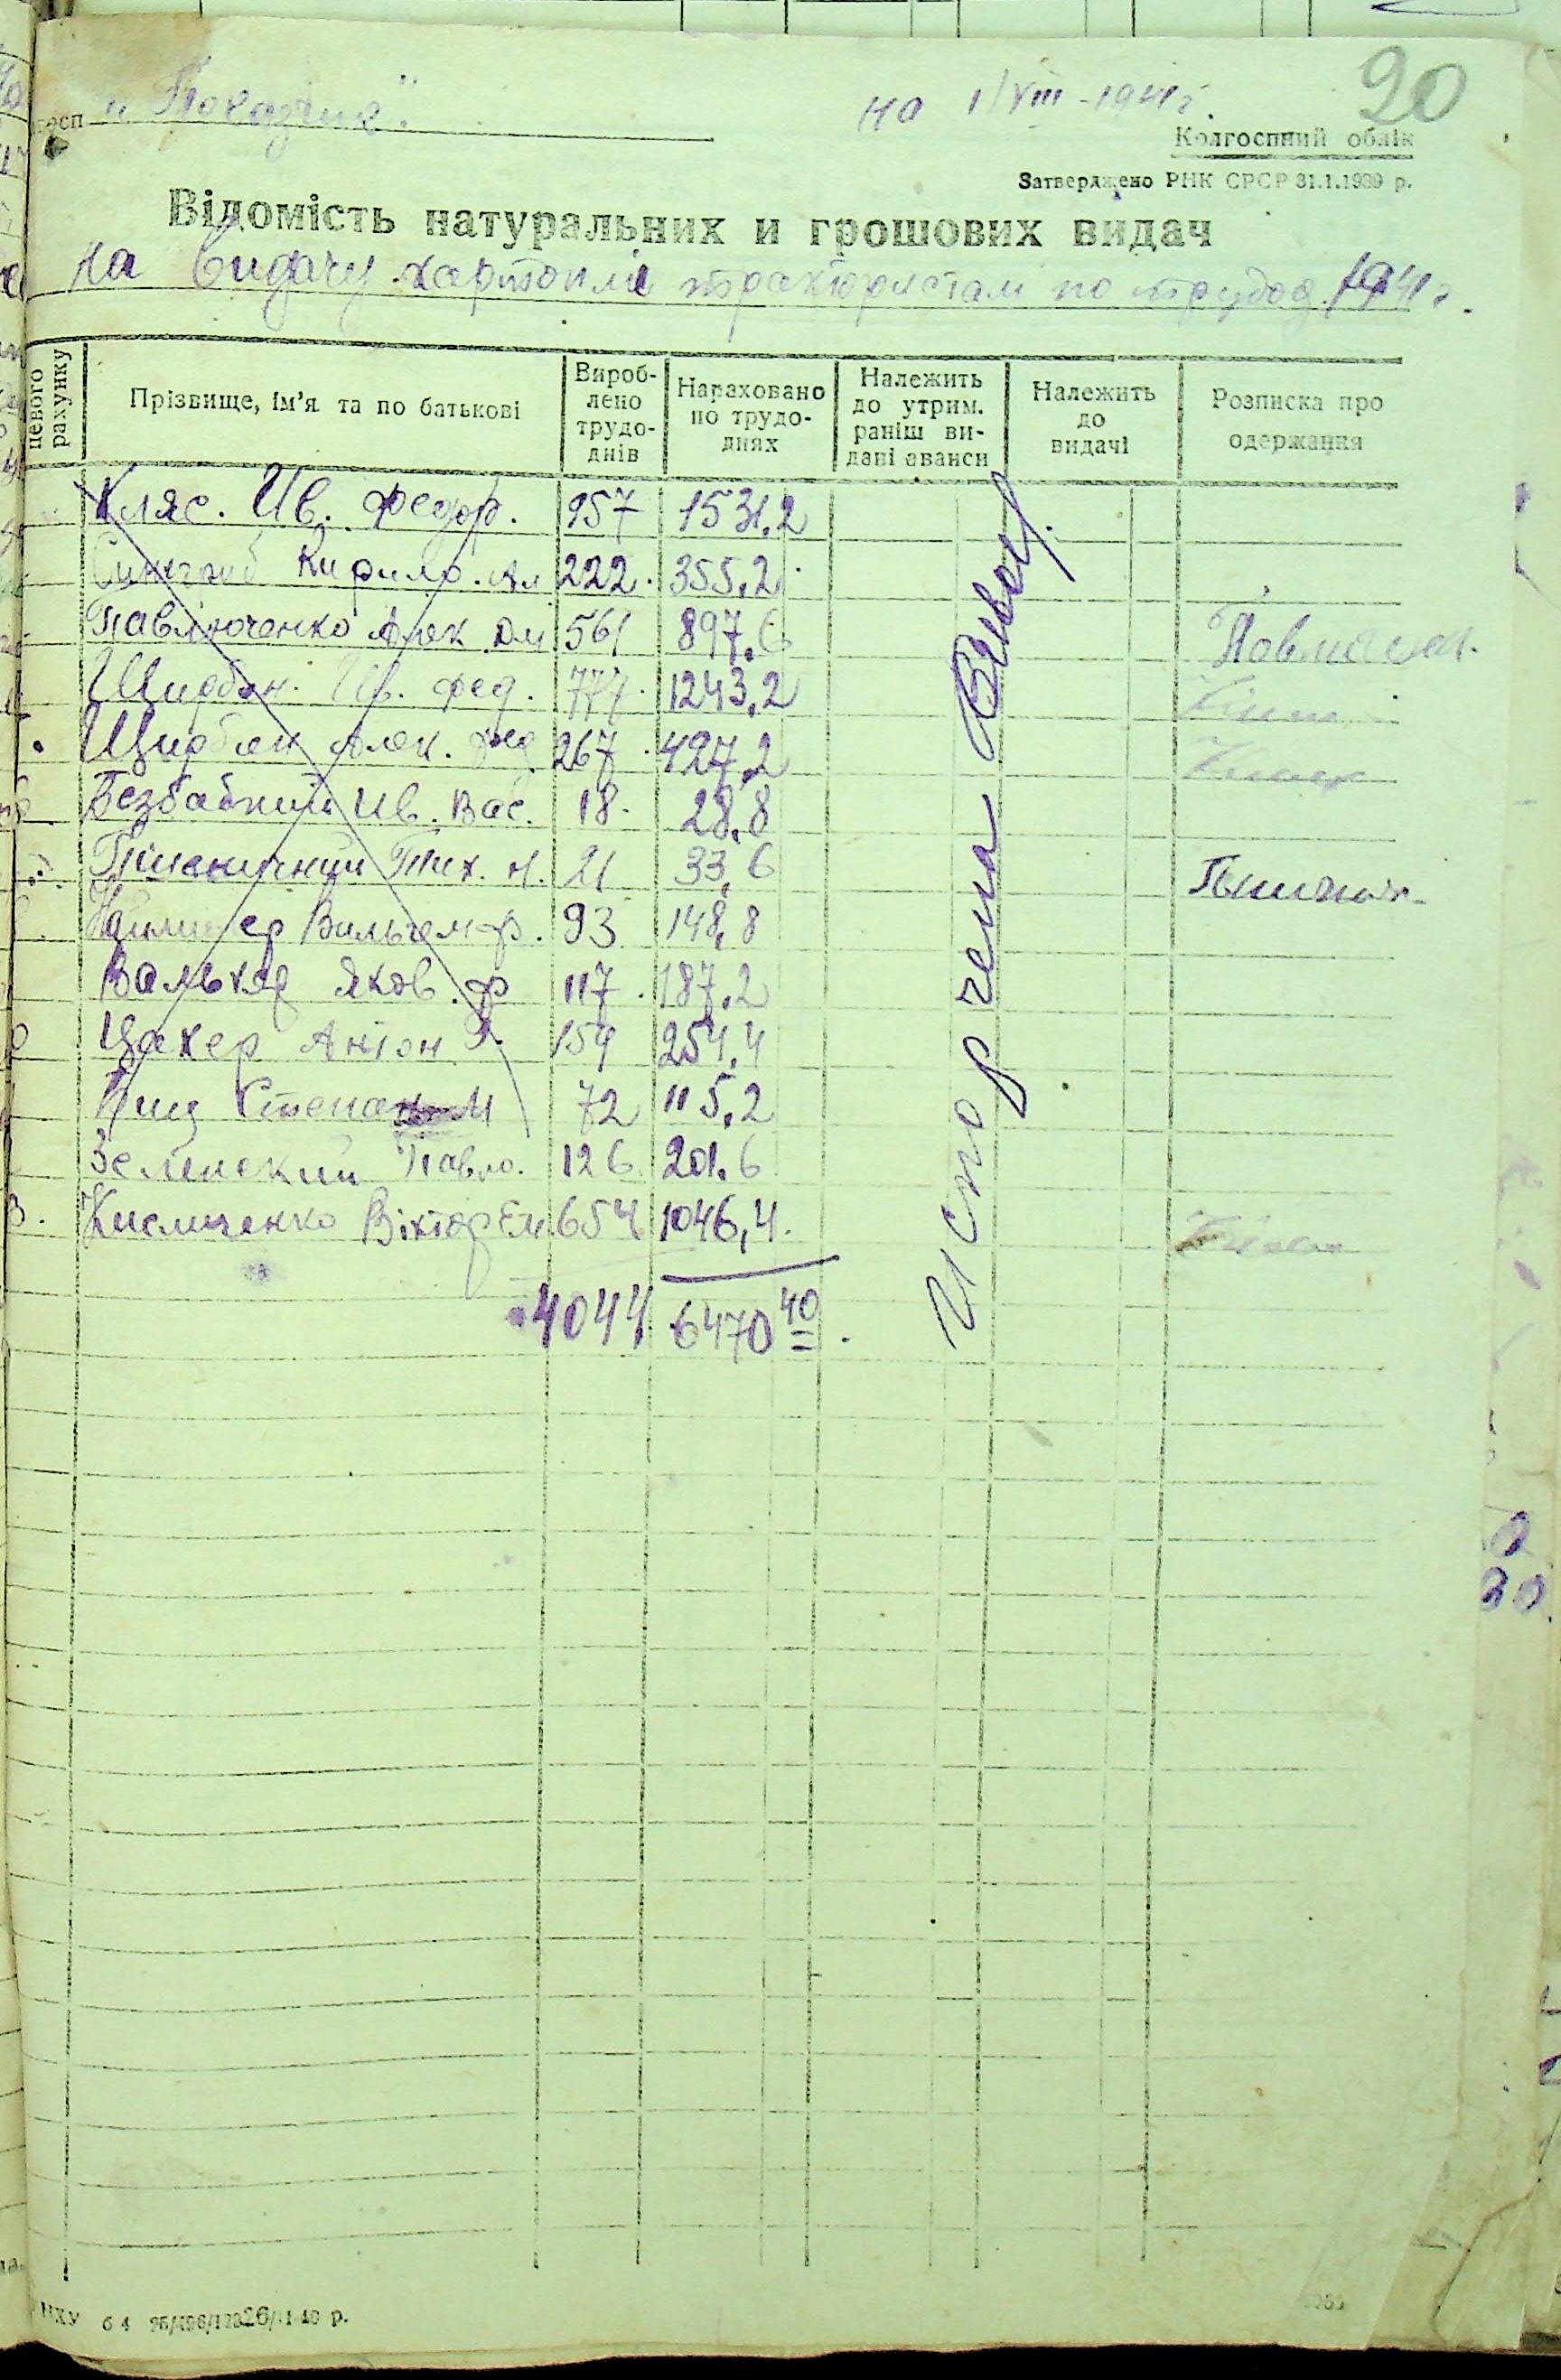 на 1/VIII-1941 г. 20
госп
Колгоспний облік
Затверджено РНК СРСР 31.1.1939 р.
Відомість натуральних и грошових видач
на видачу картоплі трактористам по трудод. 1941 г.
певого рахунку
Прізвище, ім'я та по батькові
Вироблено трудоднів
Нараховано по трудоднях
Належить до утрим. раніш видані аванси
Належить до видачі
Розписка про одержання
Кляс. Ив. Федор. 957 1531,2
Кирило. Ал 222 355,2
Павлюченко Алек Дм 561 897,6
Щирбан. Ив. Фед. 777 1243,2
Щирбан Алек. Фед 267 427,2
Безбабний Ив. Вас. 18 28,8
Пшеничний Тих. М. 21 33,6
Вильгем Ф. 93 148,8
Вальтер Яков. Ф 117 187,2
Цахер Антон 159 254,4
Степан М 72 115,2
Зелинский Павло. 126 201,6
Кисличенко Віктор Ем. 654 1046,4
4044 6470 40
Испорчена
НХУ